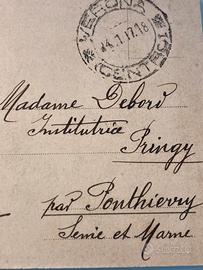 VERONA
24.1.17.18
CENTR
Madame Debord
Institutrice
Pringy
par Ponthierry
Seine et Marne